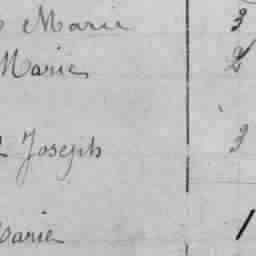 Marie 3
Marie 2
Joseph 3
Marie 1